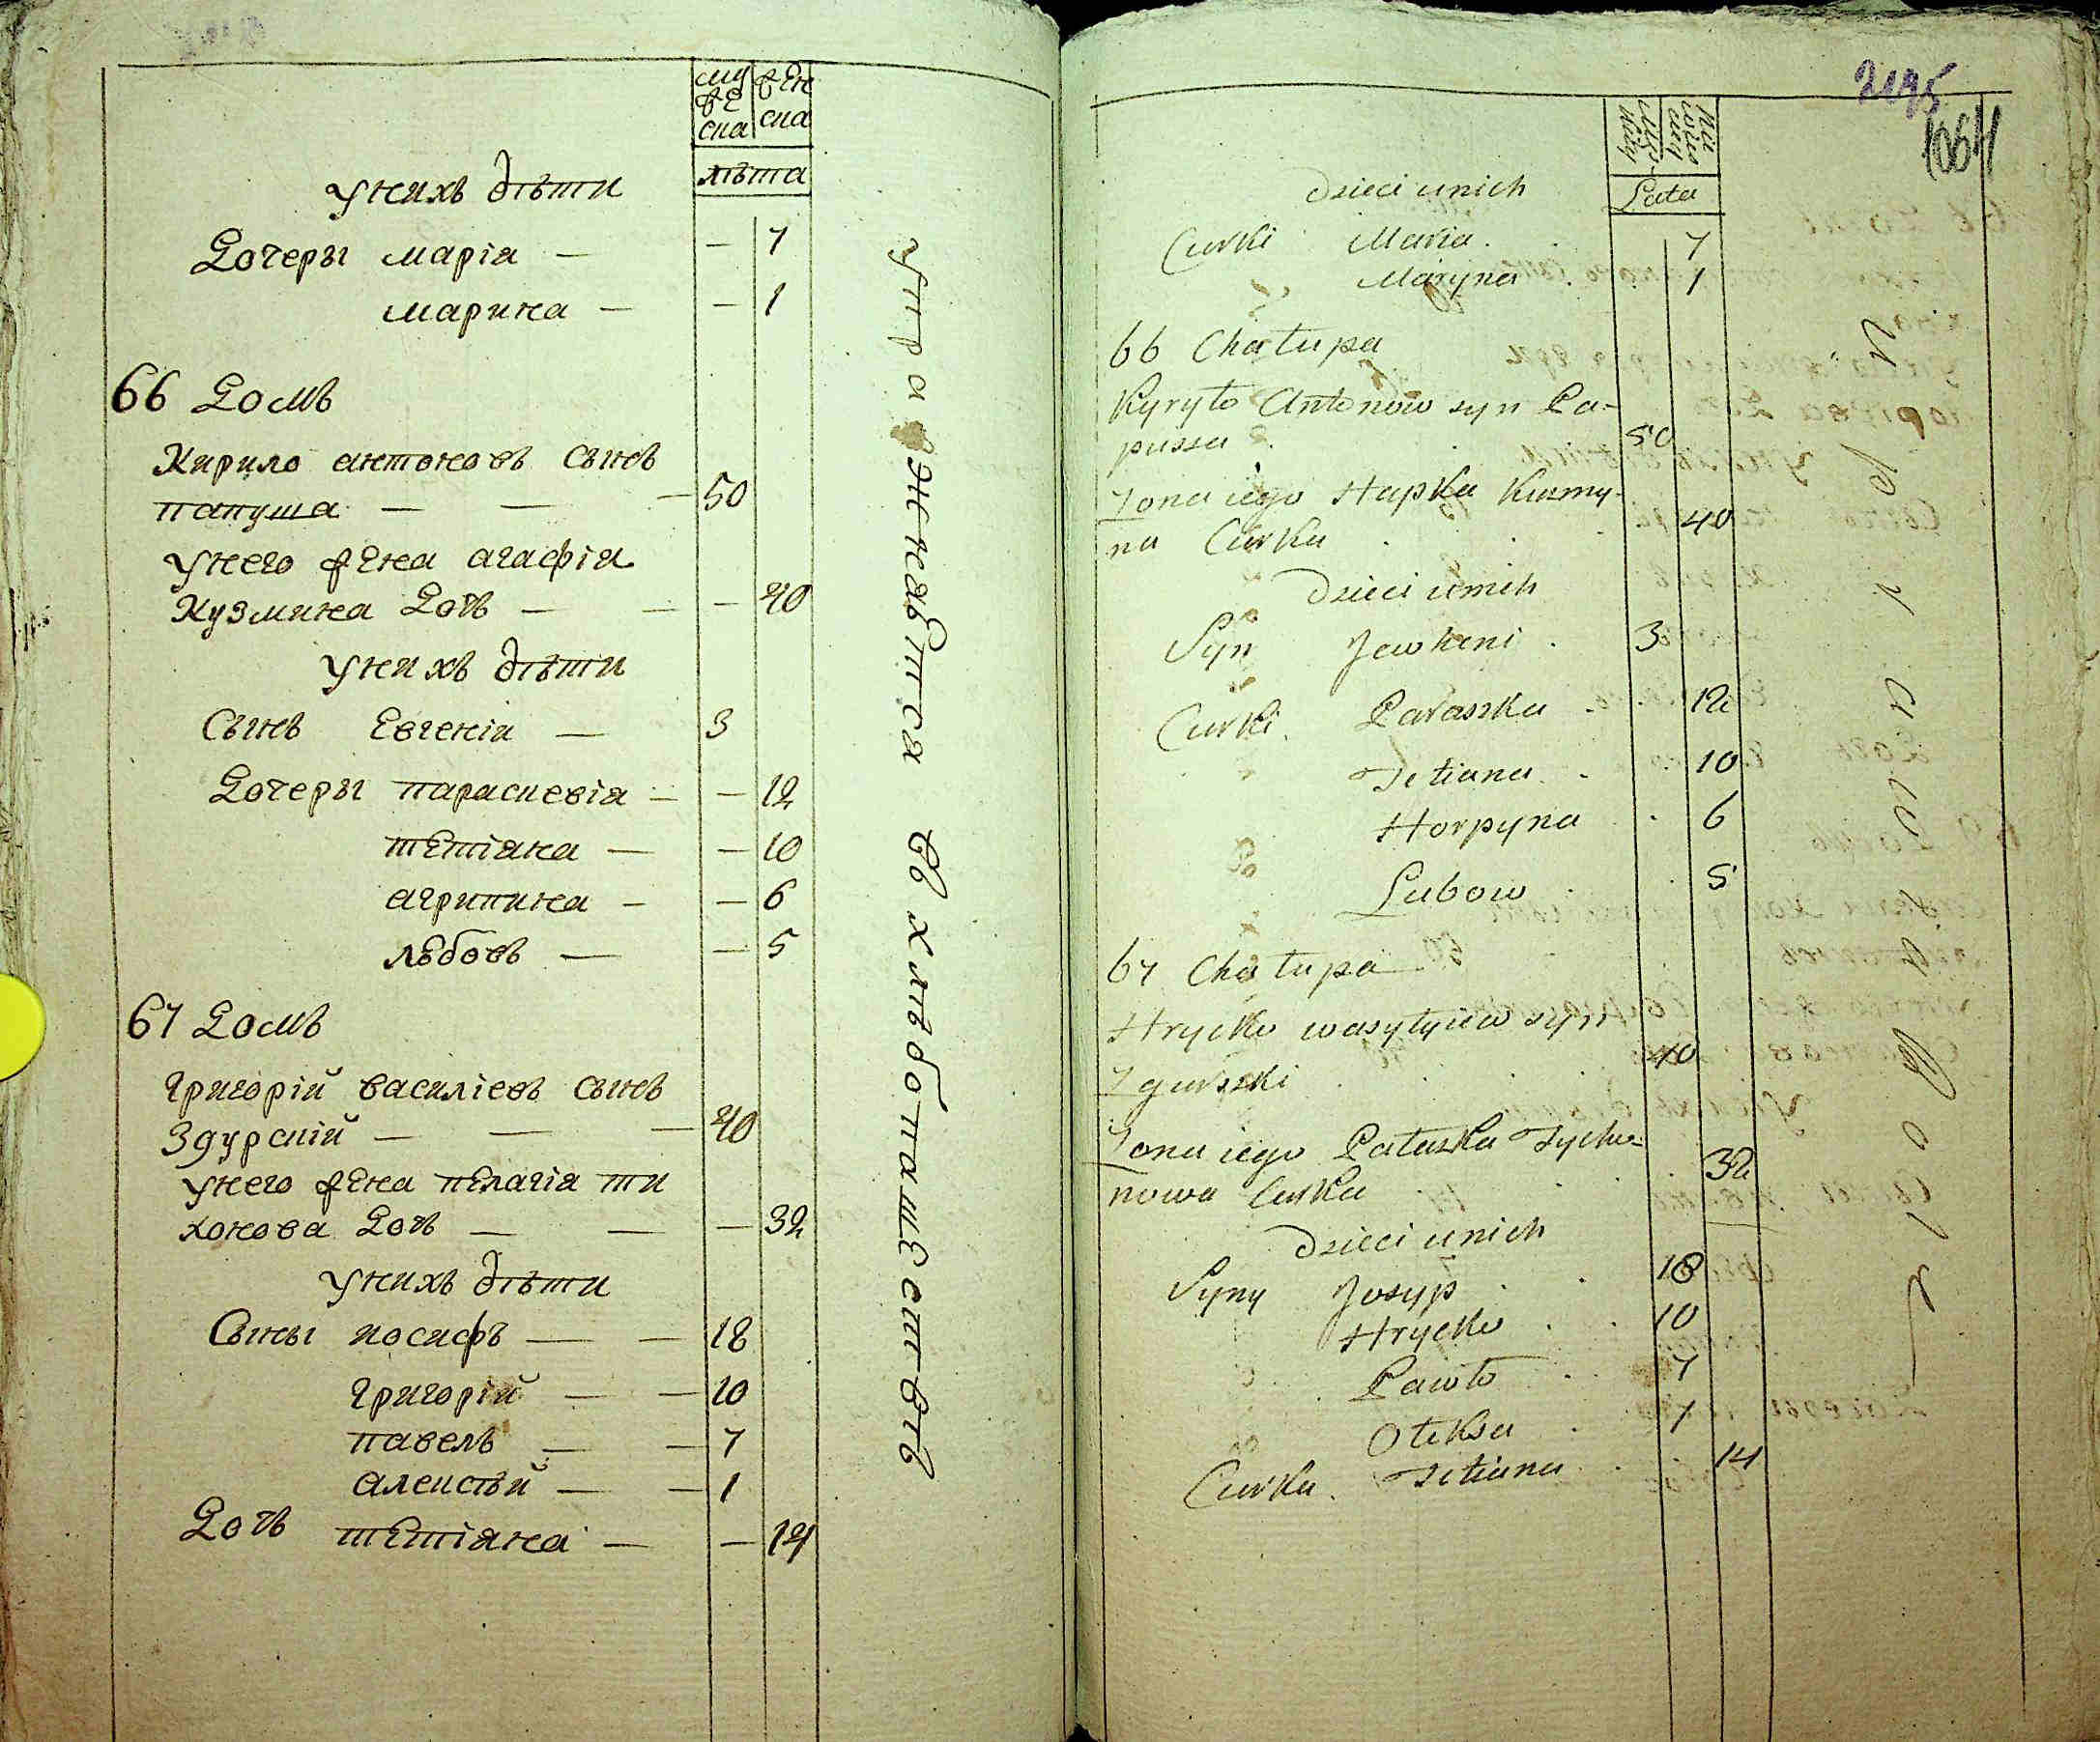 муже
ска
жен
ска
лѣта
у нихъ дѣти
Дочеры марія — — 7
марина — — 1
66 Домъ
Кирило антоновъ сынъ
папуша — — — 50
у него жена агафія
Кузмина Дочь — — — 40
у нихъ дѣти
Сынъ Евгеній — 3
Дочеры параскевія — — 12
тетіяна — — 10
агрипина — — 6
любовъ — — 5
67 Домъ
григорій василіевъ сынъ
Згурскій — — — 40
у него жена пелагія ти
хонова Дочь — — — 32
у нихъ дѣти
Сыны иосифъ — — 18
григорій — — 10
павелъ — — 7
алексѣй — — 1
Дочь тетіяна — — 14
упражняется въ хлѣбопашествѣ
1064
Lata
Dzieci u nich
Curki Maria . 7
Maryna . 1
66 Chałupa
Kyryło Antonow syn Pa-
pusza . 50
Żona iego Hapka Kuzmy-
na Curka . 40
Dzieci u nich
Syn Jewheni . 3
Curki Paraszka . 12
Tetiana . 10
Horpyna . 6
Lubow . 5
67 Chałupa
Hrycko wasylyiew syn
Zgurski . 40
Żona iego Pałaszka Tycho-
nowa Curka . 32
Dzieci u nich
Syny Josyp . 18
Hrycko . 10
Pawło . 7
Ołeksa . 1
Curka Tetiana . 14